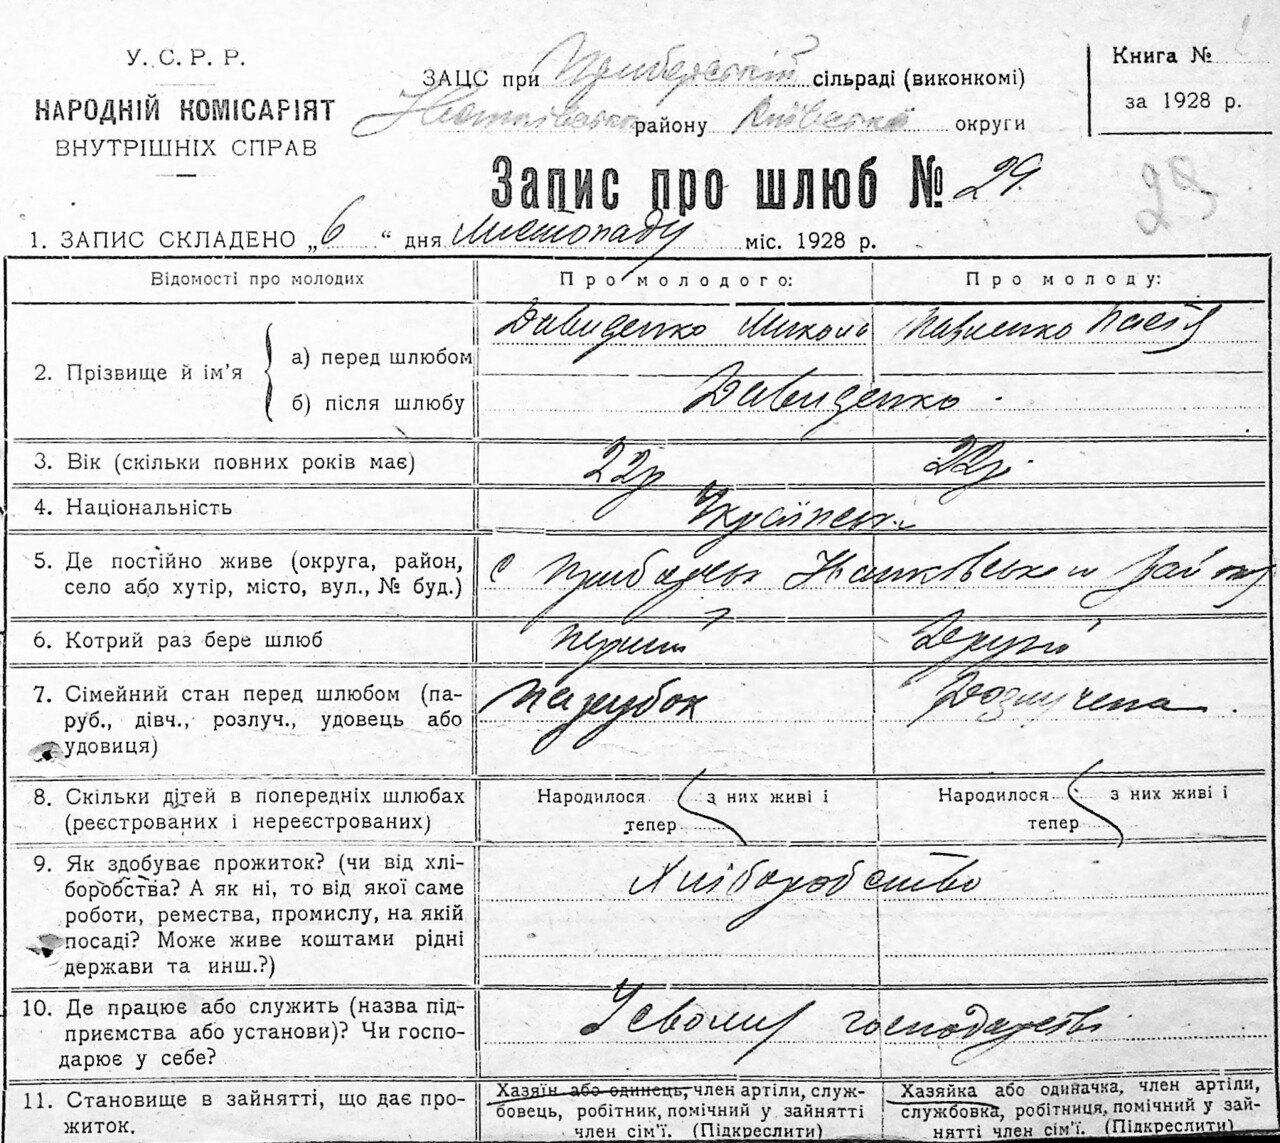 У. С. Р. Р.
НАРОДНІЙ КОМІСАРІЯТ
ВНУТРІШНІХ СПРАВ
ЗАЦС при сільраді (виконкомі)
району округи
Книга №
за 1928 р.
Запис про шлюб № 29
29
1. ЗАПИС СКЛАДЕНО „6“ дня Листопаду міс. 1928 р.
Відомості про молодих
Про молодого:
Про молоду:
2. Прізвище й ім’я
а) перед шлюбом
Давиденко Микола
Павленко
б) після шлюбу
Давиденко
3. Вік (скільки повних років має)
22р
22р.
4. Національність
5. Де постійно живе (округа, район,
село або хутір, місто, вул., № буд.)
с
6. Котрий раз бере шлюб
перший
Другий
7. Сімейний стан перед шлюбом (па-
руб., дівч., розлуч., удовець або
удовиця)
Парубок
8. Скільки дітей в попередніх шлюбах
(реєстрованих і нереєстрованих)
Народилося з них живі і
тепер
Народилося з них живі і
тепер
9. Як здобуває прожиток? (чи від хлі-
боробства? А як ні, то від якої саме
роботи, ремества, промислу, на якій
посаді? Може живе коштами рідні
держави та инш.?)
Хліборобство
10. Де працює або служить (назва під-
приємства або установи)? Чи госпо-
дарює у себе?
У своему господарстві
11. Становище в зайнятті, що дає про-
житок.
Хазяїн або одинець, член артіли, служ-
бовець, робітник, помічний у зайнятті
член сім’ї. (Підкреслити)
Хазяйка або одиначка, член артіли,
службовка, робітниця, помічний у зай-
нятті член сім’ї. (Підкреслити)